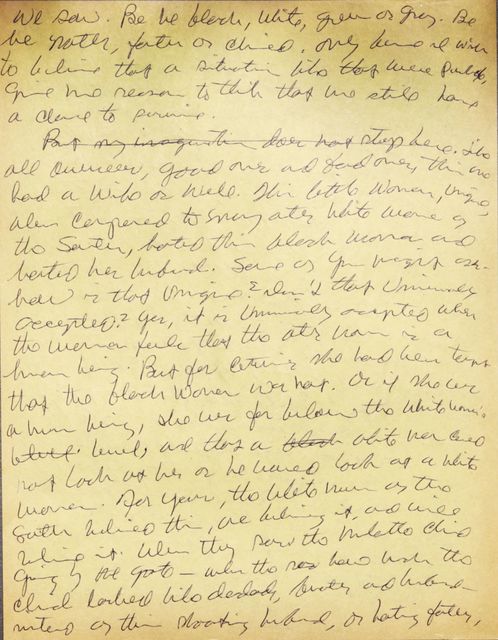 we saw. Be he black, white, green or grey. Be
he mother, father or child. Only
to believe that a situation like that were
give me reason to think that we still have
a chance to survive.
But my imagination does not stop here. Like
all overseer, good ones and bad ones, this one
had a wife as well. This little woman, unique,
when compared to many other white women of
the South, hated this black woman and
hated her husband. Some of you might ask
how is that unique? Isn't that universally
accepted? Yes, it is universally accepted when
the woman feels that the other woman is a
human being. But for centuries she had been taught
that the black woman was not. Or if she was
a human being, she was far below the white woman's
level, and that a black white man could
not look at her as he would look at a white
woman. For years, the white woman of the
South believed this, are believing it, and will
believe it. When they saw the mulatto child
the - when the how the
child looked like daddy, brother and husband -
instead of this shooting husband, or hating father,